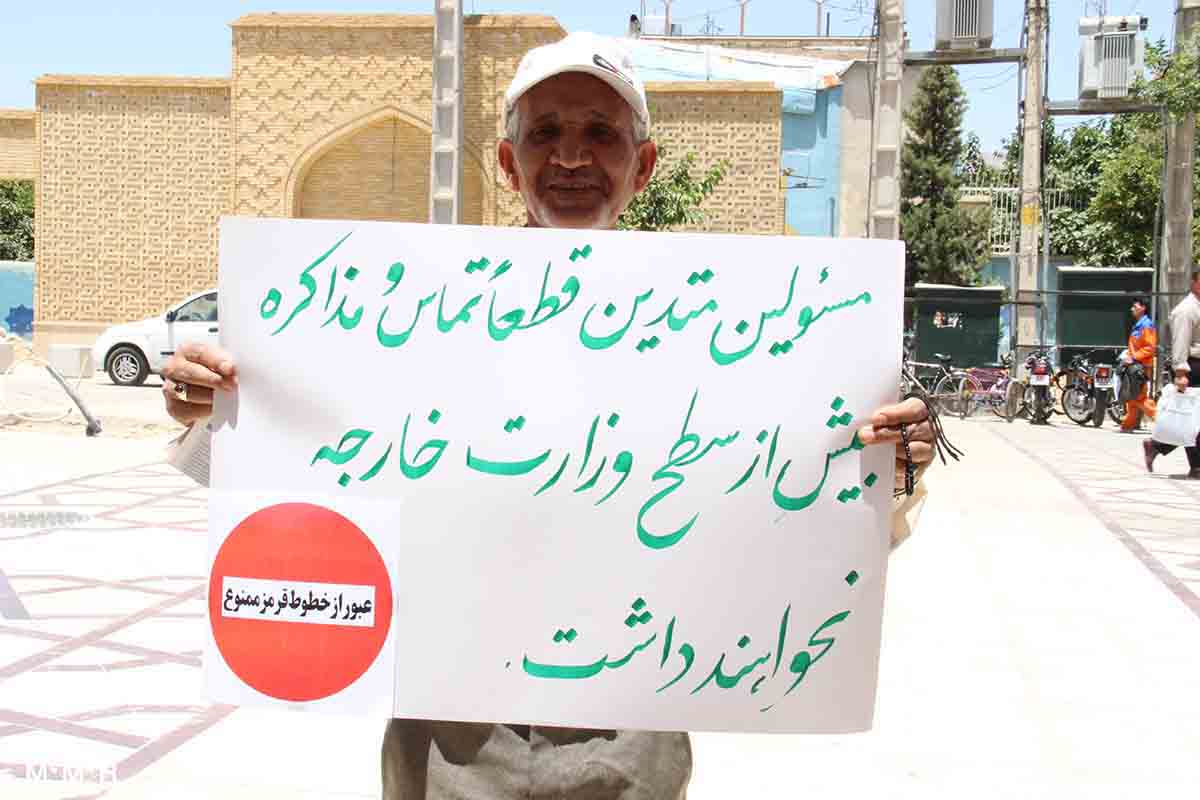 مسئولین متدین قطعاً تماس و مذاکره
بیش از سطح وزارت خارجه
نخواهند داشت.
عبور از خطوط قرمز ممنوع
M·M·H